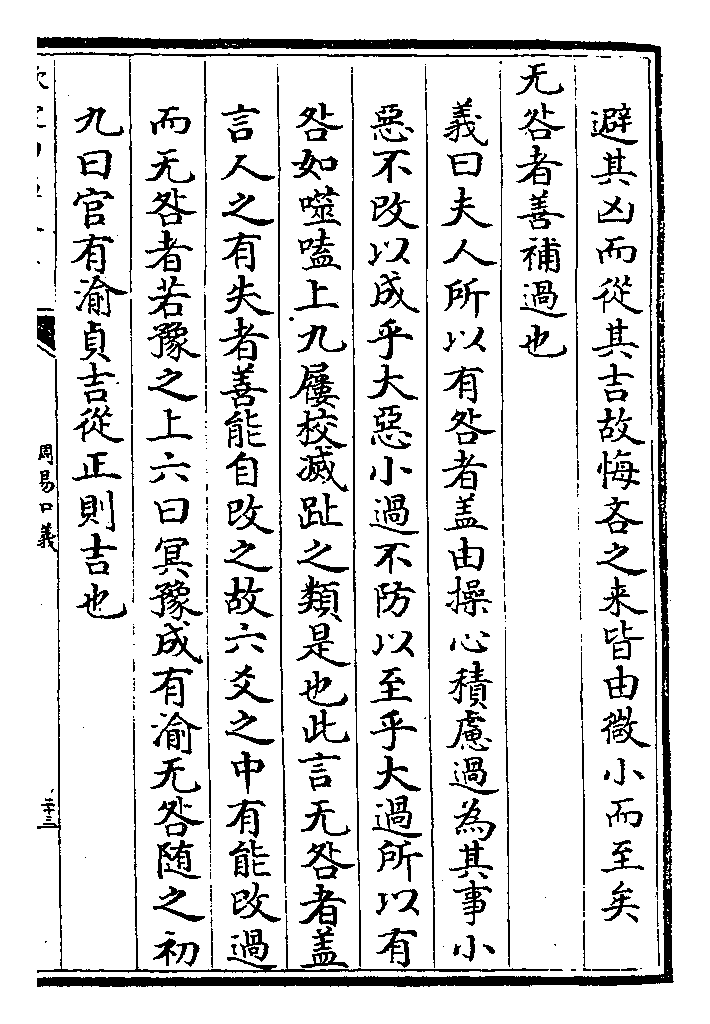 避其凶而從其吉故悔吝之来皆由微小而至矣
无咎者善補過也
義曰夫人所以有咎者盖由操心積慮過為其事小
惡不改以成乎大惡小過不防以至乎大過所以有
咎如噬嗑上九屨校滅趾之類是也此言无咎者盖
言人之有失者善能自改之故六爻之中有能改過
而无咎者若豫之上六曰冥豫成有渝无咎随之初
九曰官有渝貞吉從正則吉也
周易口義
二十三